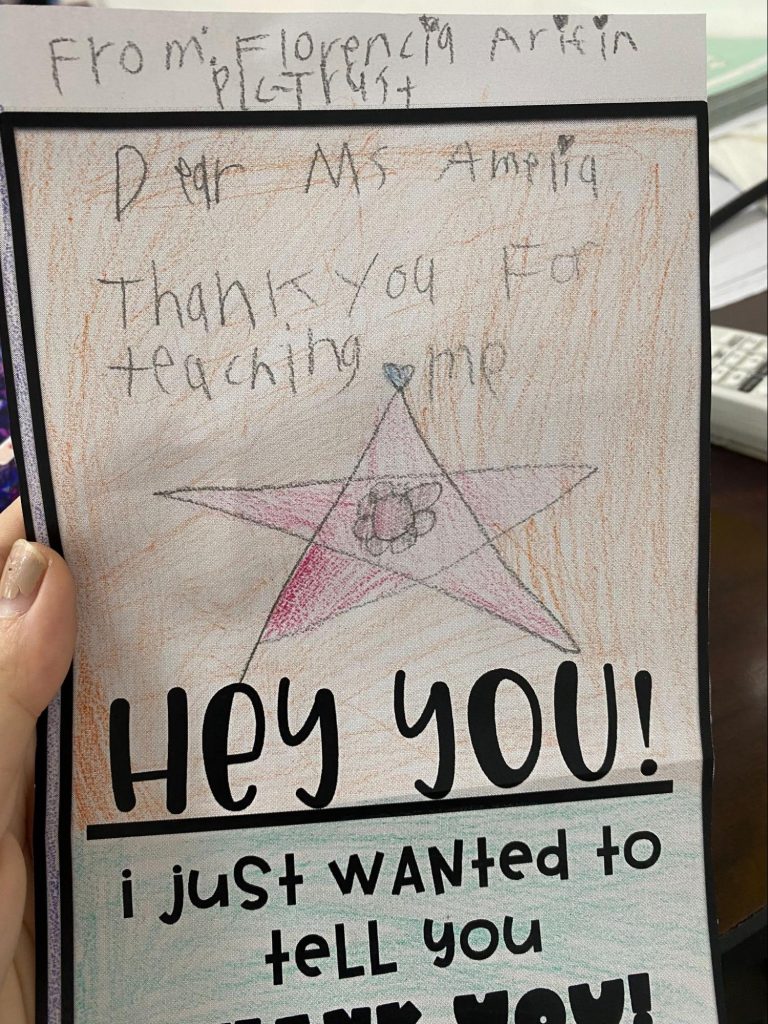 From: Florencia Arifin
P1C-Trust
Dear Ms Amelia
Thank you For
teaching me
Hey you!
i just wanted to
tell you
THANK YOU!